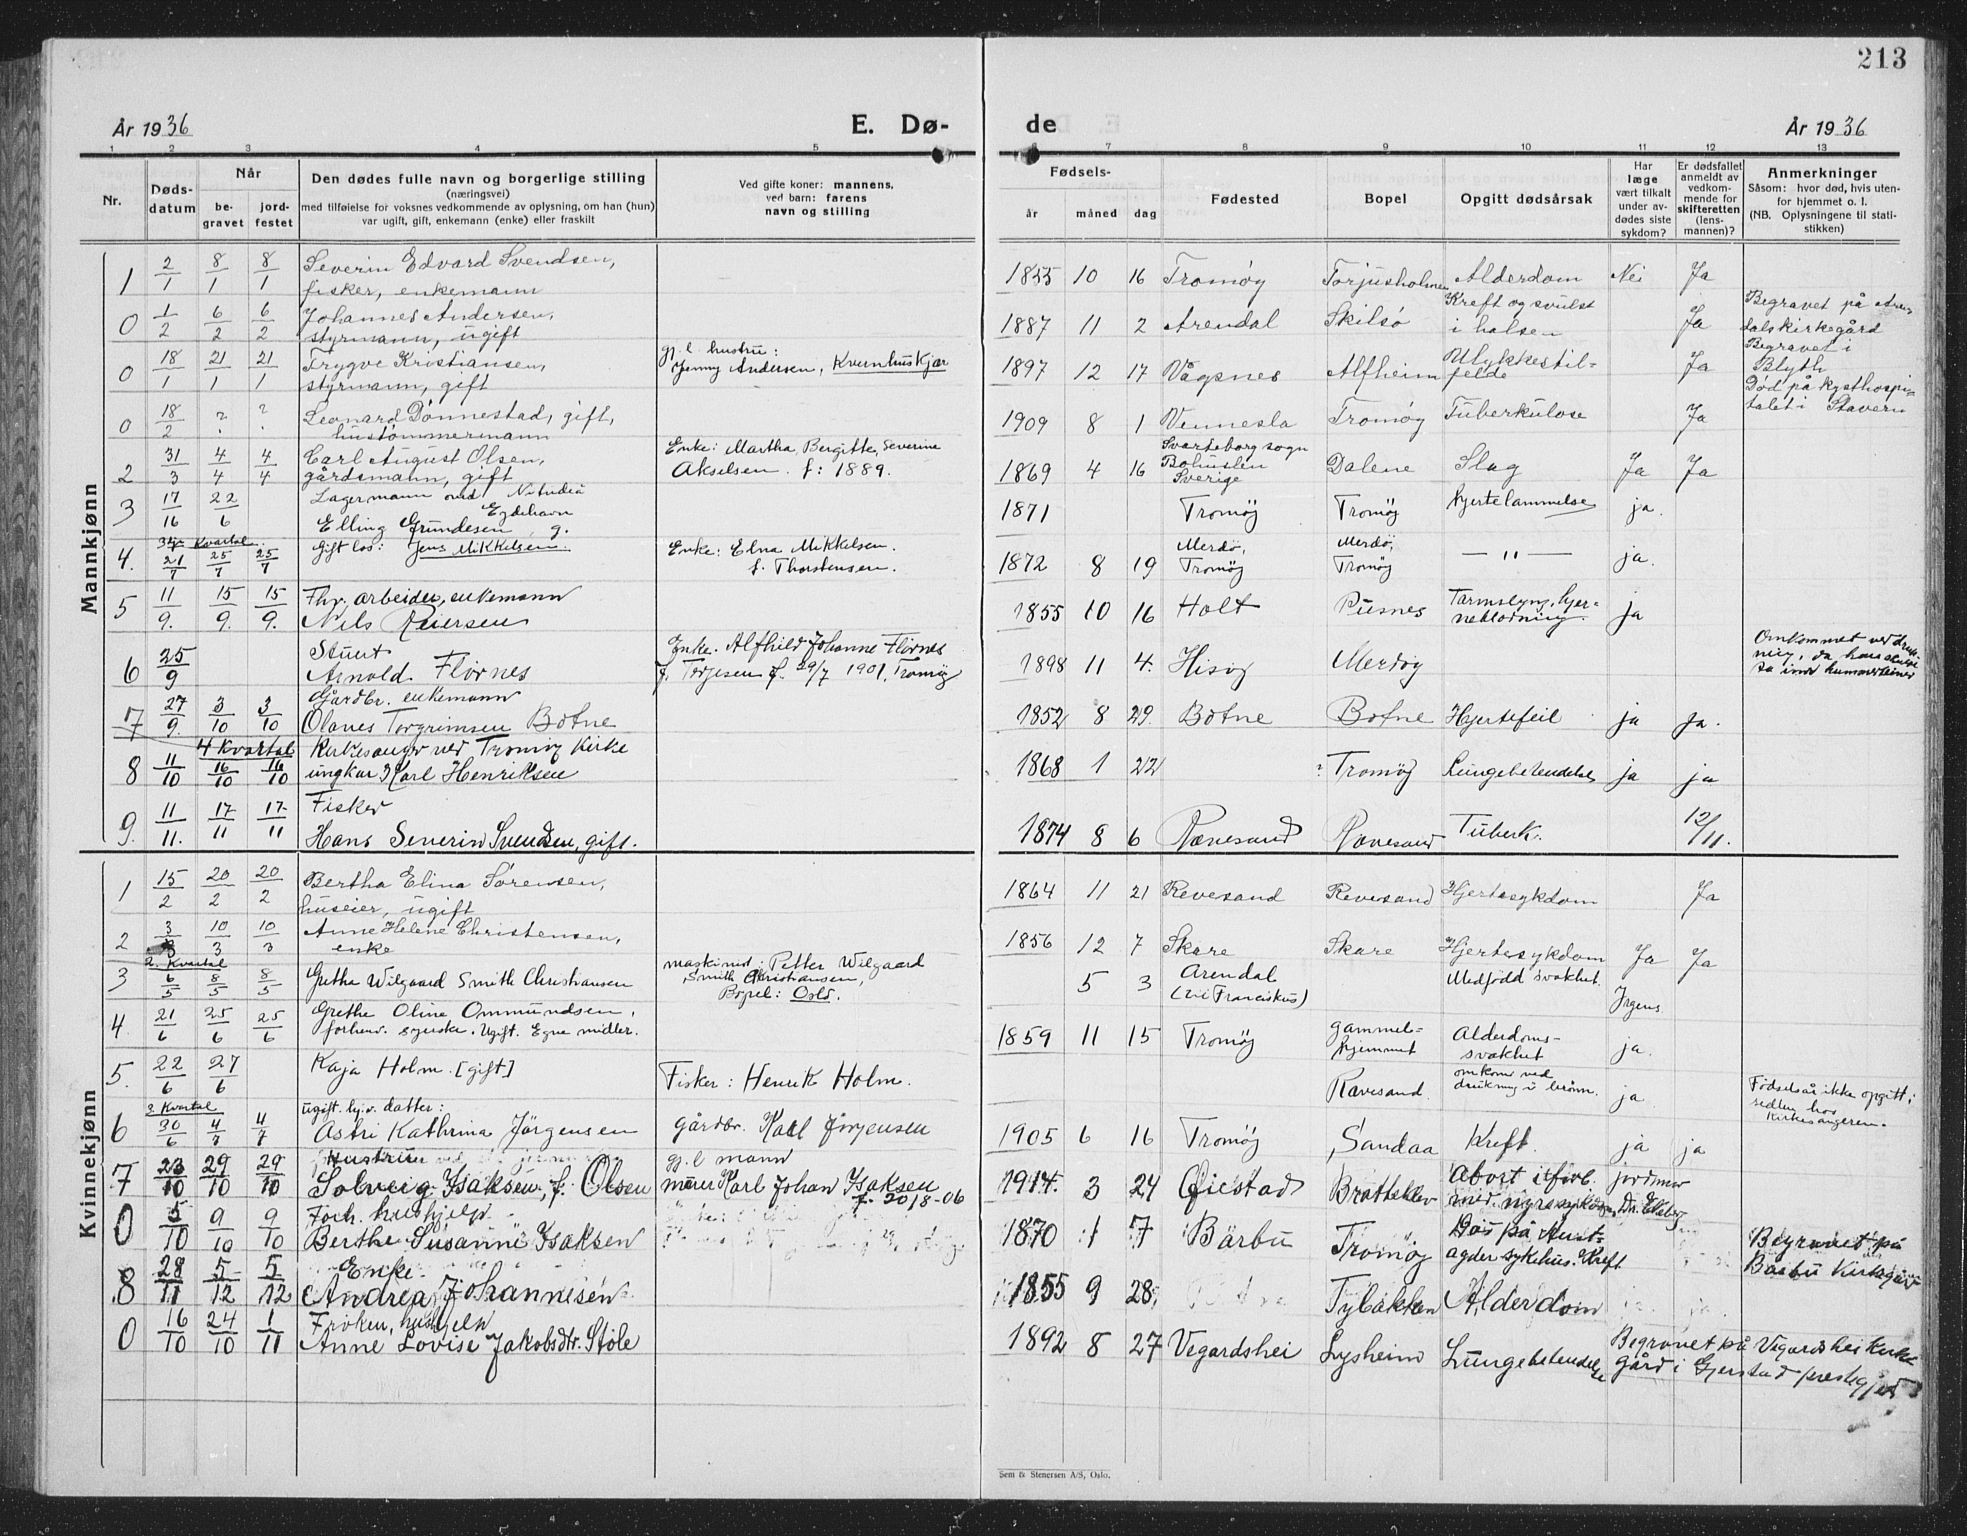 213
År 1936 E. Dø- de År 1936
1 2 3 4 5 6 7 8 9 10 11 12 13
Nr. Døds-datum Når be-gravet jord-festet
Den dødes fulle navn og borgerlige stilling
(næringsvei)
med tilføielse for voksnes vedkommende av oplysning, om han (hun)
var ugift, gift, enkemann (enke) eller fraskilt
Ved gifte koner: mannens,
ved barn: farens
navn og stilling
Fødsels-
år måned dag
Fødested
Bopel
Opgitt dødsårsak
Har læge vært tilkalt under av-dødes siste sykdom?
Er dødsfallet anmeldt av vedkom-mende for skifteretten (lens-mannen)?
Anmerkninger
Såsom: hvor død, hvis uten-
for hjemmet o. l.
(NB. Oplysningene til stati-
stikken)
Mannkjønn
1 2/1 8/1 8/1 Severin Edvard Svendsen, 1855 10 16 Tromøy Torjusholmen Alderdom Nei Ja
fisker, enkemann
0 1/2 6/2 6/2 Johannes Andersen, 1887 11 2 Arendal Skilsø Kreft og svulst Ja Begravet på Aren-
styrmann, ugift i halsen dalskirkegård
0 18/1 21/1 21/1 Trygve Kristiansen, gj. l. hustru: 1897 12 17 Vågsnes Alfheim Ulykkestil- Ja Begravet i
styrmann, gift Jenny Andersen, Kvernhuskjær felde Blyth
0 18/2 ? ? Leonard Dønnestad, gift, 1909 8 1 Vennesla Tromøy Tuberkulose Ja Død på kysthospi-
hustømmermann talet i Stavern
2 31/3 4/4 4/4 Carl August Olsen, Enke: Martha Bergitte, Severine 1869 4 16 Svarteborg sogn Dalene Slag Ja Ja
gårdsmann, gift Akselsen. f: 1889. Bohuslen
Sverige
3 17/16 22/6 Lagermann ved Nitudeå 1871 Tromøy Tromøy hjertelammelse ja.
Eydehavn
Elling Grundesen g.
3dje Kvartal.
4. 21/7 25/7 25/7 Gift los: Jens Mikkelsen. Enke: Elna Mikkelsen. 1872 8 19 Merdø, Merdø, — " — ja.
f. Thorstensen. Tromøy Tromøy
5 11/9. 15/9. 15/9. Fhv. arbeider, enkemann 1855 10 16 Holt Pusnes Tarmslyng, hjer- ja
Nils Reiersen neblødning.
6 25/9 Stuert Enke. Alfhild Johanne Flørnes 1898 11 4. Hisøy Merdøy Omkommet ved druk-
Arnold Flørnes f. Terjesen f. 29/7 1901. Tromøy ning, da han skulde
7 27/9. 3/10 3/10 Gårdbr. enkemann 1852 8 29. Botne Botne Hjertefeil ja ja.
Olanes Torgrimsen Botne
4 Kvartal
8 11/10 16/10 16/10 Kirkesanger ved Tromøy Kirke 1868 1 22 ? Tromøy Lungebetendelse ja ja
ungkar Karl Henriksen
9. 11/11. 17/11 17/11 Fisker 1874 8 6 Rævesand Rævesand Tuberk. 12/11.
Hans Severin Svendsen, gift.
Kvinnekjønn
1 15/2 20/2 20/2 Bertha Elina Sørensen, 1864 11 21 Revesand Revesand Hjertesykdom Ja
huseier, ugift
2 3/3 10/3 10/3 Anne Helene Christensen, 1856 12 7 Skare Skare Hjertesykdom Ja Ja
enke
2. Kvartal
3 6/5 8/5 8/5 Grethe Wilgaard Smith Christiansen maskinist: Petter Wilgaard 5 3 Arendal Medfødd svakhet.
Smith Christiansen, (St. Franciskus)
Bopel: Oslo.
4. 21/6 25/6 25/6 Grethe Oline Ommundsen, 1859 11 15 Tromøy gammel- Alderdoms- ja.
forhenv. syerske. Ugift. Egne midler. hjemmet svakhet
5. 22/6 27/6 Kaja Holm. [gift] Fisker: Henrik Holm. Rævesand. omkom ved ja Fødselsår ikke opgitt i
drukning i brønn. sedlen hos
Kirkesangeren.
3. Kvartal
6 30/6 4/7 4/7 ugift hj.v. datter: 1905 6 16 Tromøy Sandaa Kreft. ja ja
Astri Kathrina Jørgensen gårdbr. Karl Jørgensen
7 23/10 29/10 29/10 Hustru gj. l. mann 1914. 3 24 Øiestad Brattekleiv Abort i forb. jordmor
Solveig Isaksen, f. Olsen murer Karl Johan Isaksen med nyresykdom
f. 20/8-06
0 5/10 9/10 9/10 Forh. hushjelp 1870 1 7 Barbu Tromøy Døs på Aust- Begravet på
Berthe Susanne Isaksen agder sykehus. Kreft Barbu Kirkegård
8 28/11 5/12 5/12 Enke 1855 9 28 Tybakken Alderdom
Andrea Johannesen
0 16/10 24/10 1/11 Frøken, hushjelp 1892 8 27 Vegardshei Lysheim Lungebetendelse Begravet på Vegardshei kirke
Anne Lovise Jakobsdtr. Støle gård i Gjerstad prestegjeld
Sem & Stenersen A/S, Oslo.